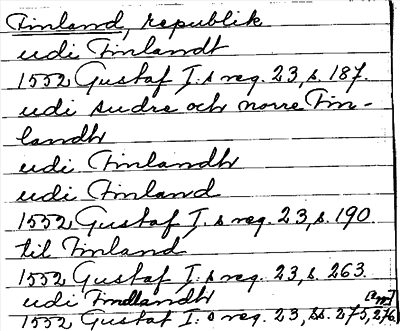 Finland, republik
udi Finlandt
1552 Gustaf I:s reg. 23, s. 187.
udi sudre och norre Fin-
landh
udi Finlandh
udi Finland
1552 Gustaf I:s reg. 23, s. 190.
til Finland
1552 Gustaf I:s reg. 23, s. 263.
udi Findlandh
1552 Gustaf I:s reg. 23, ss. 275, 276.